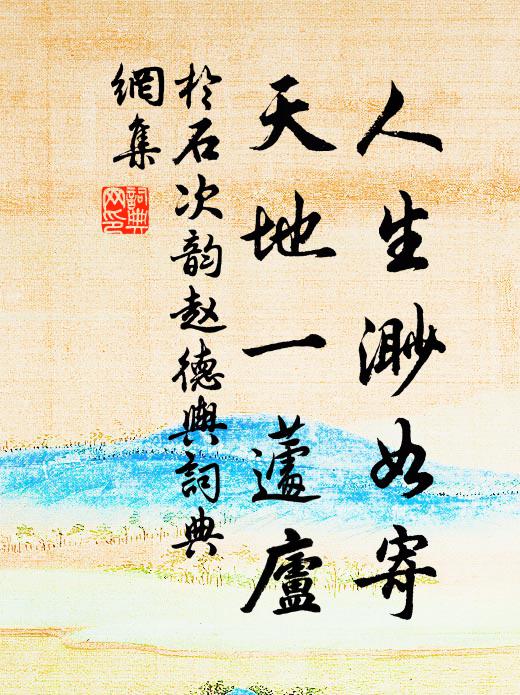 人生渺如寄
天地一蘧廬
於石次韵赵德興詞典
網集
詞典網印